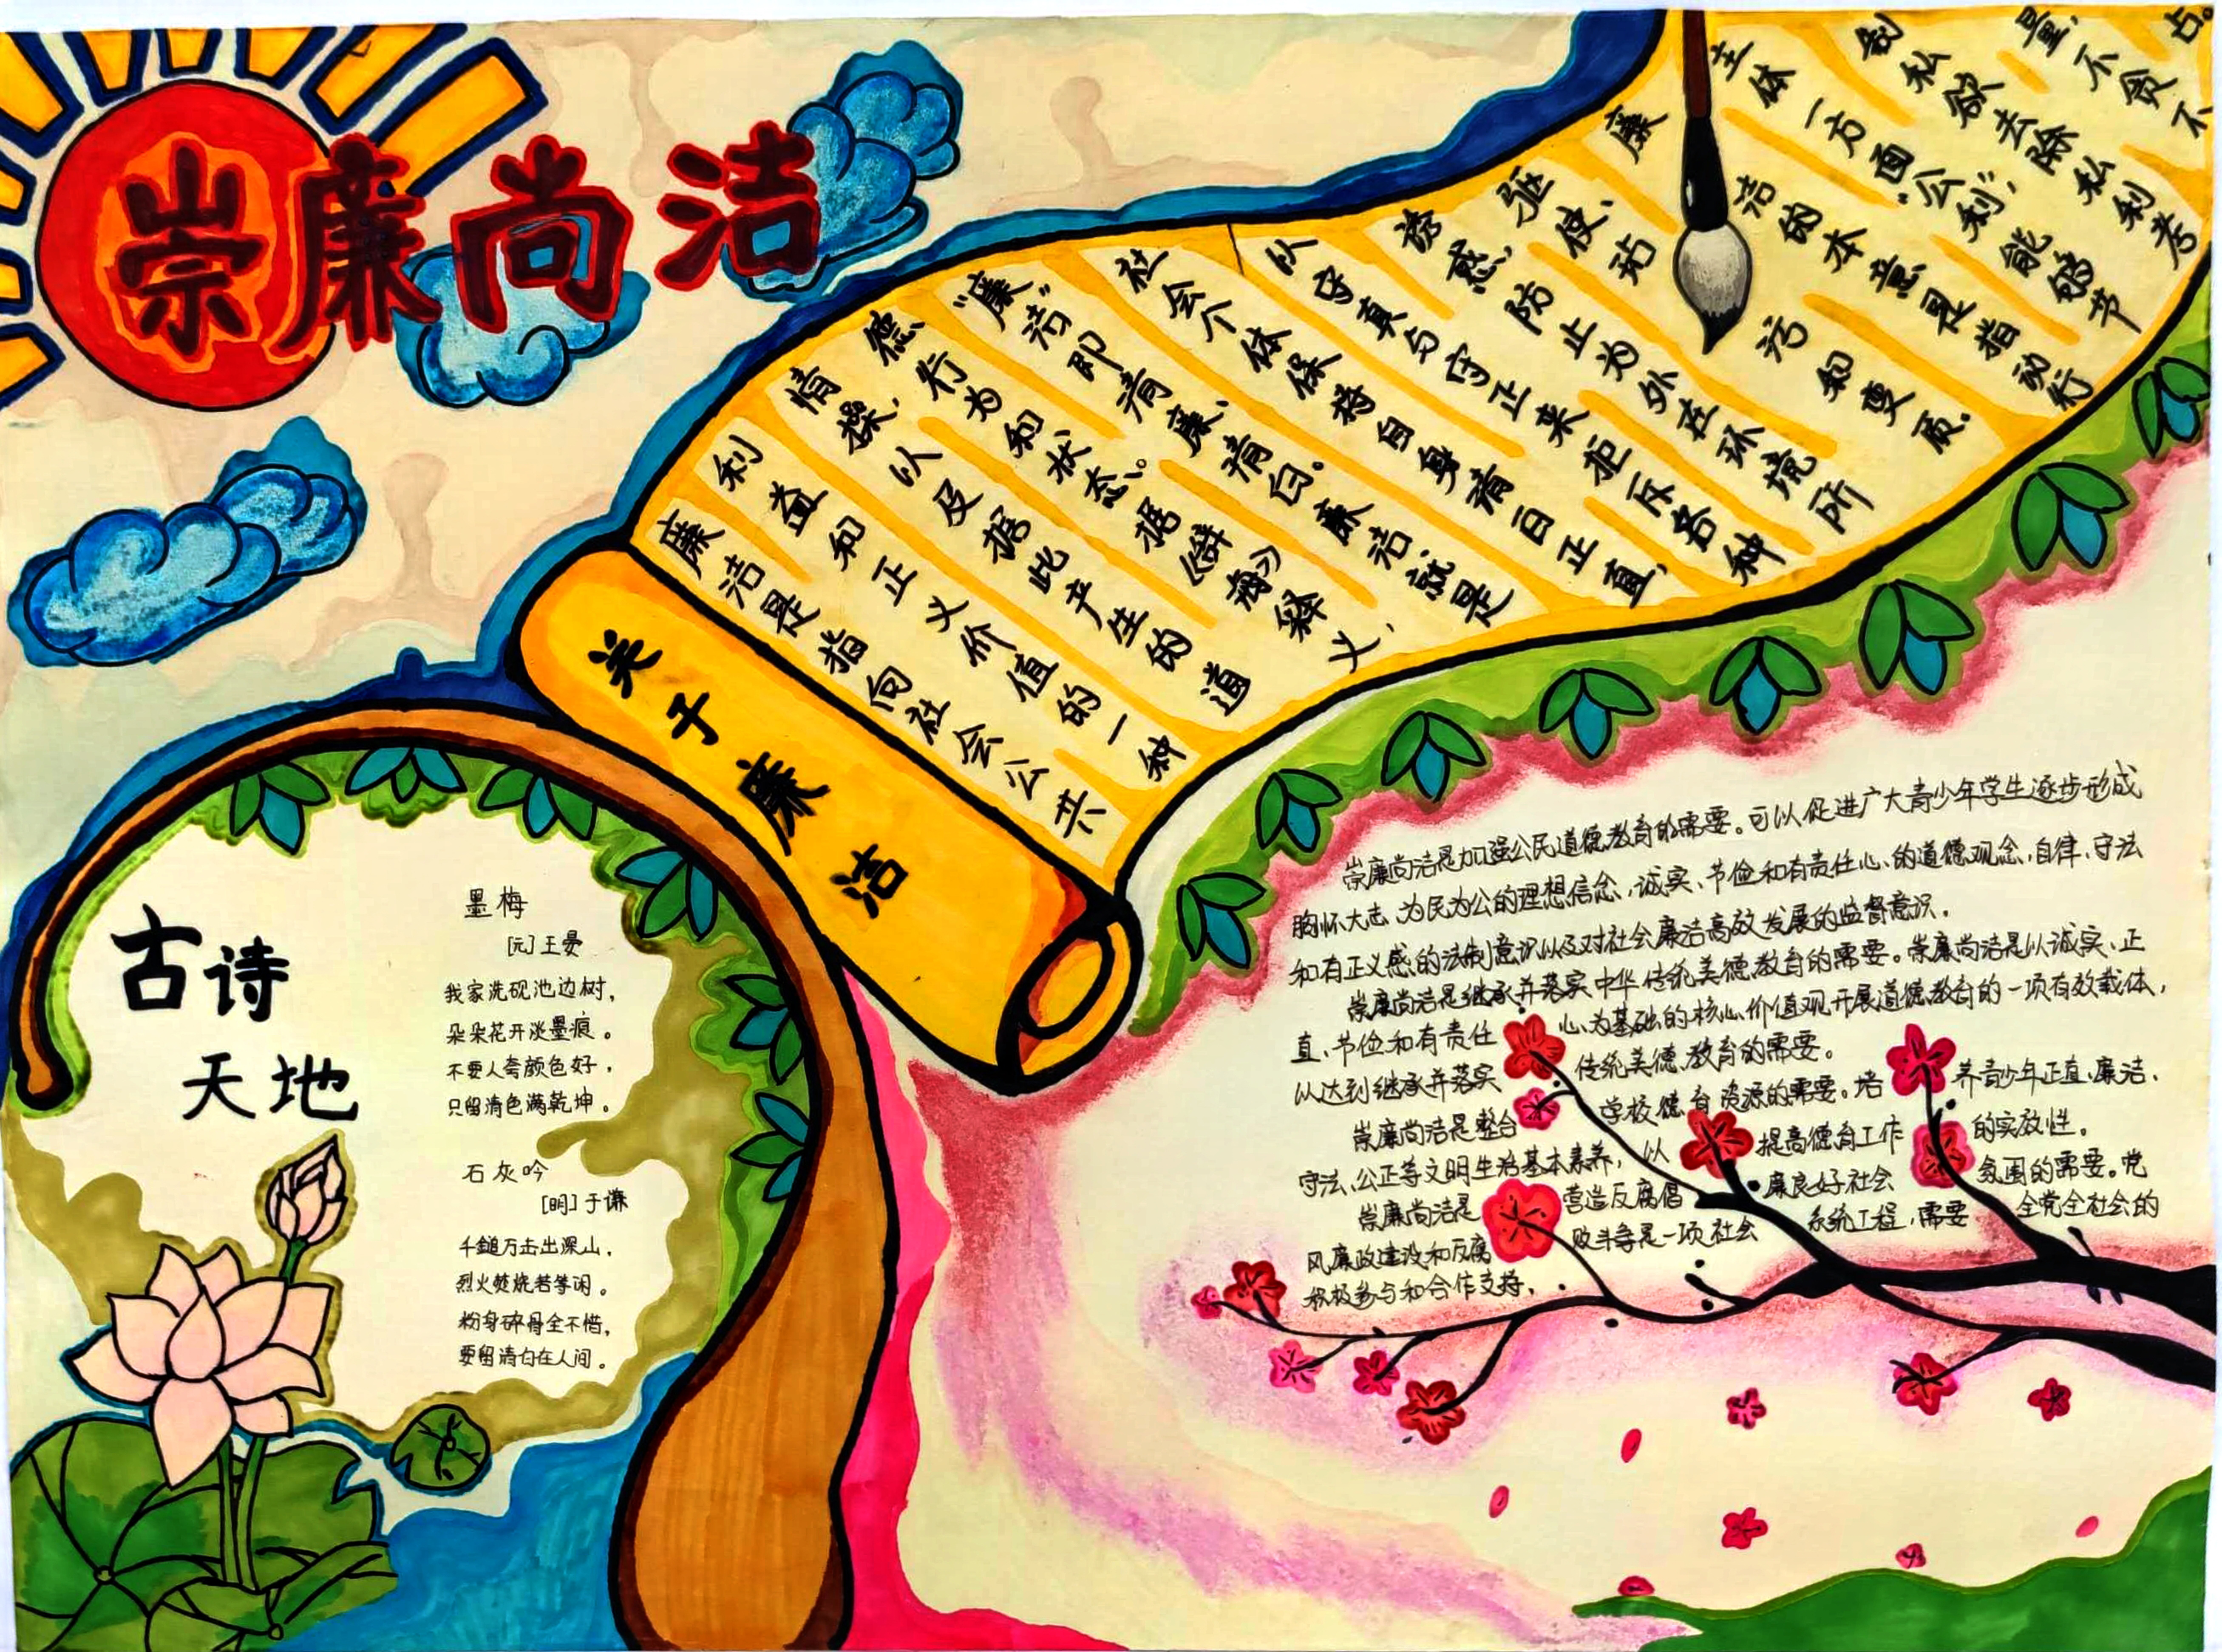 崇廉尚洁
关于廉洁
廉洁是指向社会公共
利益和正义价值的一种
情操,以及据此产生的道
德行为和状态。据《辞海》释义,
“廉洁”即清廉、清白。廉洁就是
社会个体保持自身清白正直,
以守真与守正来拒斥各种
诱惑,防止为外在环境所
驱使、玷污和变质。
廉洁的本意是指动行
主体一方面“公利”,能够节
制私欲去除私利考
量,不贪不
占。
古诗
天地
墨梅
[元]王冕
我家洗砚池边树,
朵朵花开淡墨痕。
不要人夸颜色好,
只留清色满乾坤。
石灰吟
[明]于谦
千鎚万击出深山,
烈火焚烧若等闲。
粉身碎骨全不惜,
要留清白在人间。
崇廉尚洁是加强公民道德教育的需要。可以促进广大青少年学生逐步形成
胸怀大志、为民为公的理想信念,诚实、节俭和有责任心的道德观念,自律、守法
和有正义感的法制意识以及对社会廉洁高效发展的监督意识。
崇廉尚洁是继承并落实中华传统美德教育的需要。崇廉尚洁是以诚实、正
直、节俭和有责任心为基础的核心价值观开展道德教育的一项有效载体,
以达到继承并落实传统美德教育的需要。
崇廉尚洁是整合学校德育资源的需要。培养青少年正直、廉洁、
守法、公正等文明生活基本素养,以提高德育工作的实效性。
崇廉尚洁是营造反腐倡廉良好社会氛围的需要。党
风廉政建设和反腐败斗争是一项社会系统工程,需要全党全社会的
积极参与和合作支持。